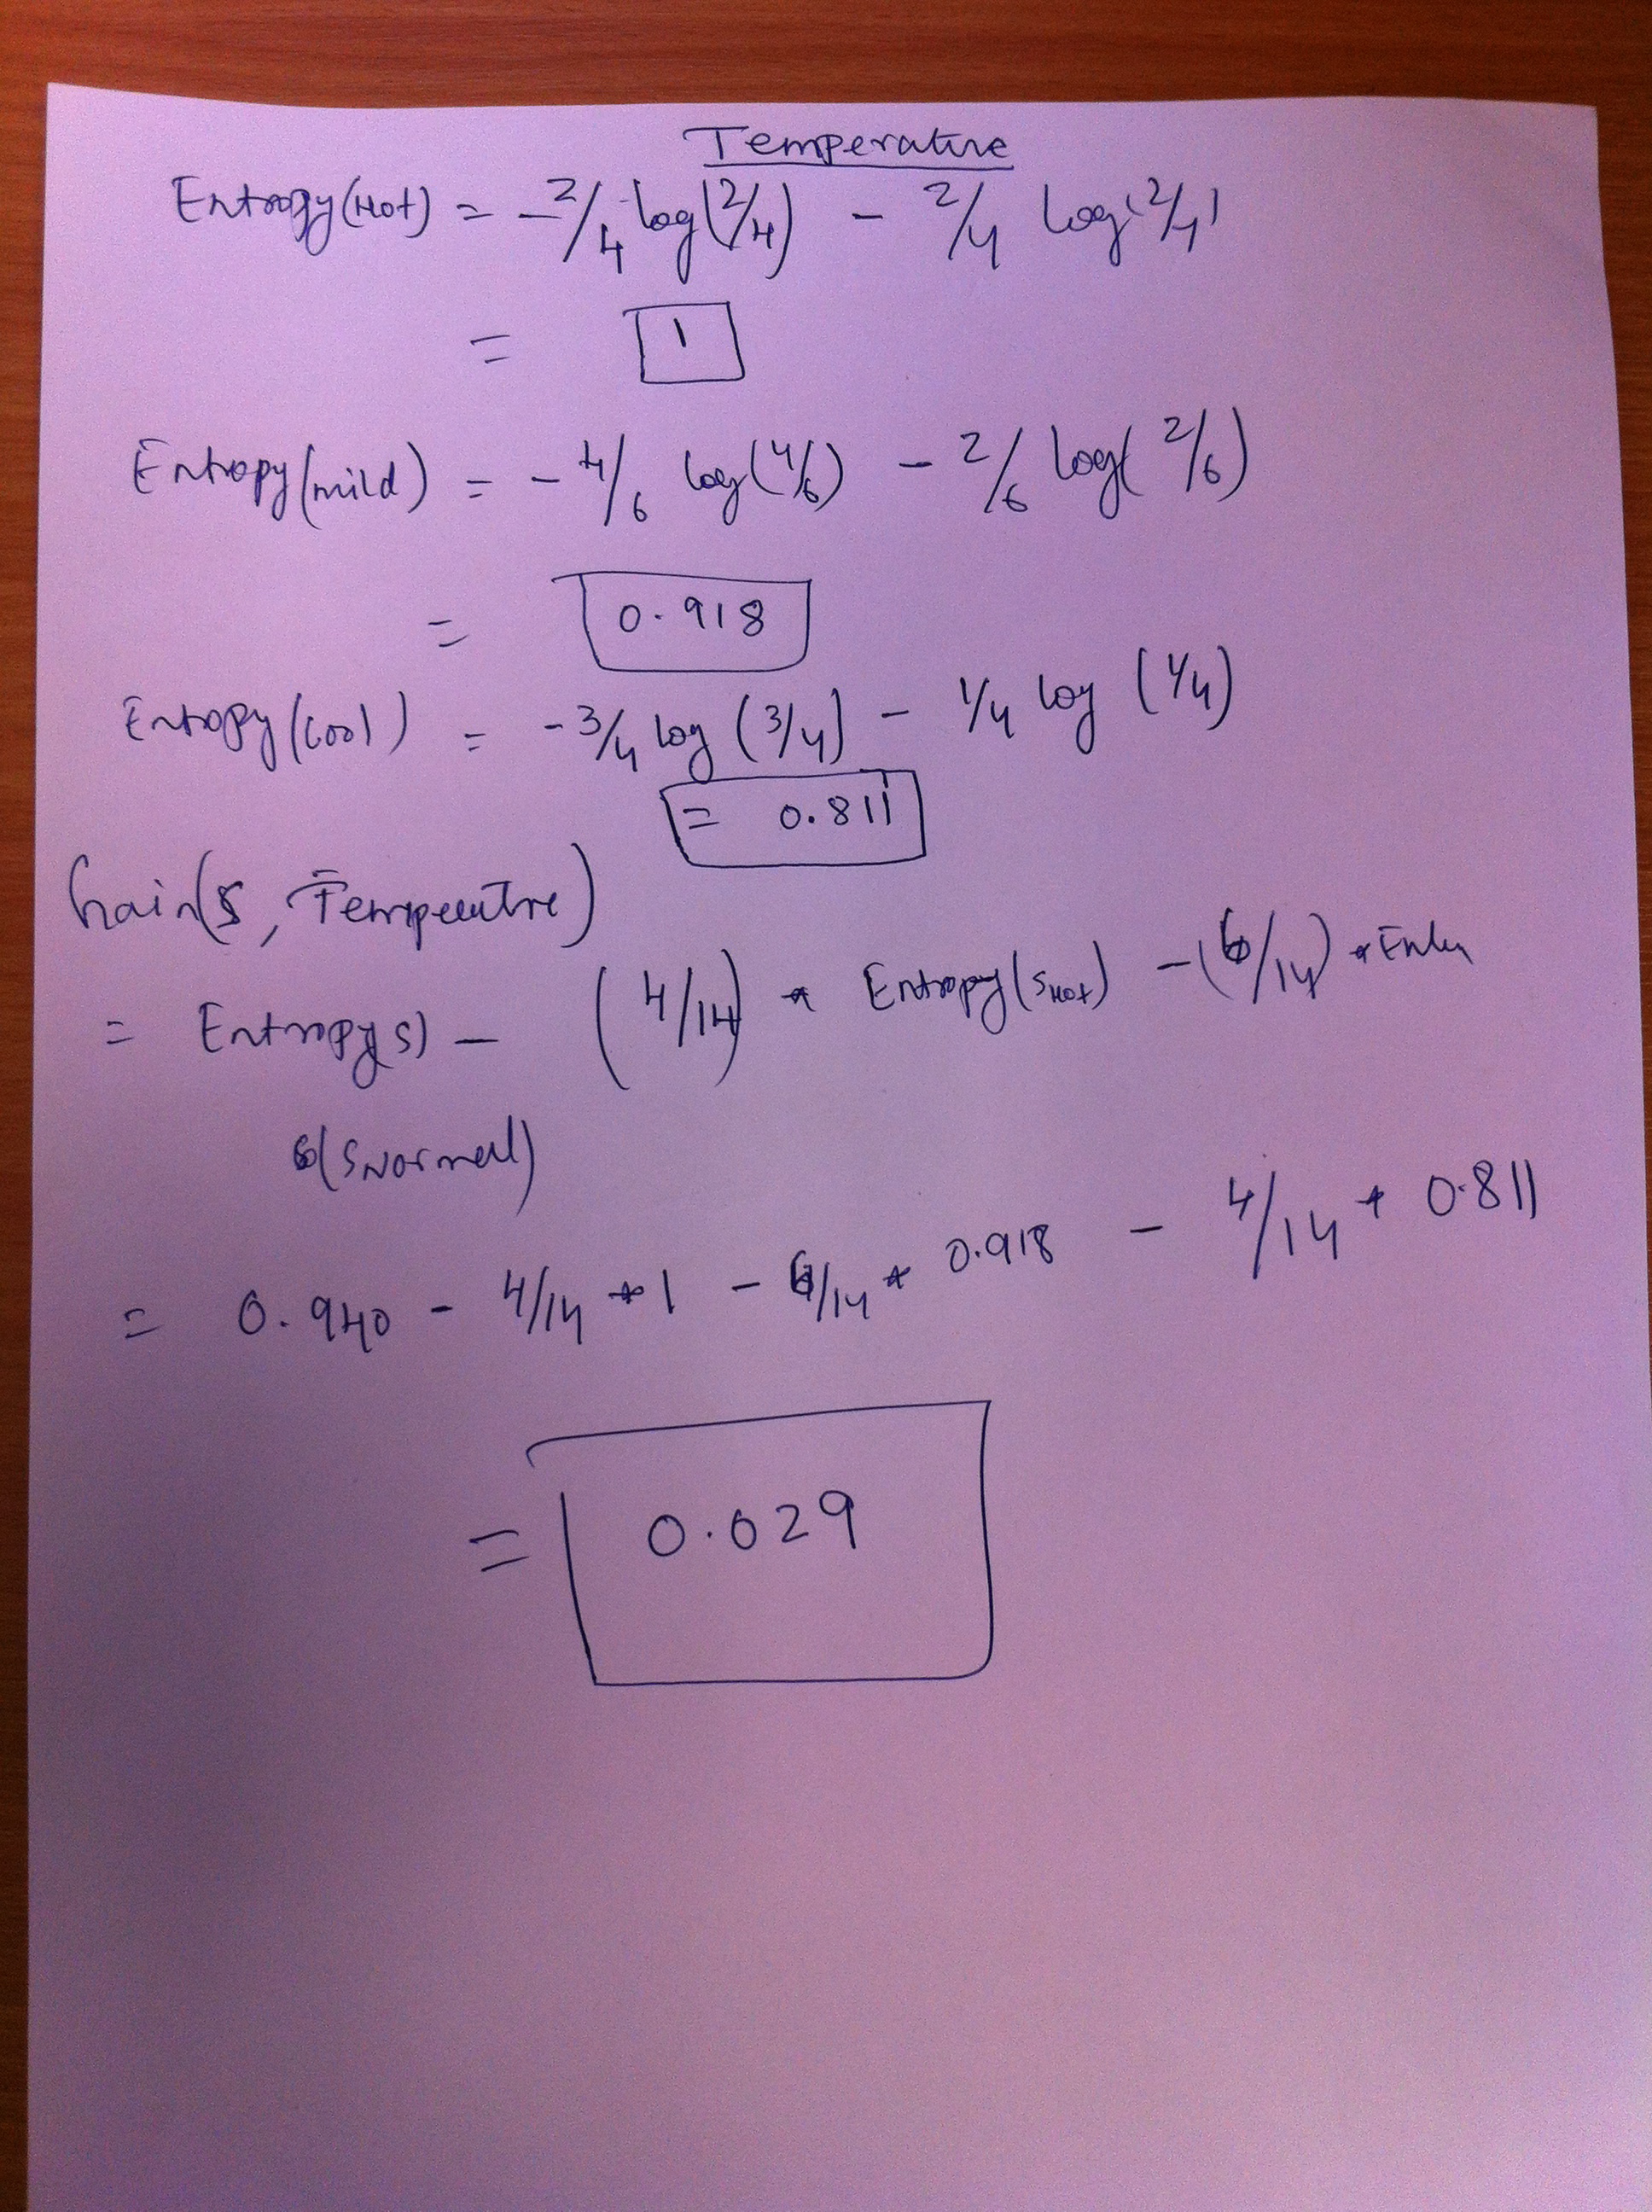 Temperature
Entropy(Hot) = -2/4 log(2/4) - 2/4 log(2/4)
= 1
Entropy(mild) = - 4/6 log(4/6) - 2/6 log(2/6)
= 0.918
Entropy(Cool) = -3/4 log (3/4) - 1/4 log (1/4)
= 0.811
Gain(S, Temperature)
= Entropy(S) - (4/14) * Entropy(SHot) - (6/14) *
(SNormal)
= 0.940 - 4/14 * 1 - 6/14 * 0.918 - 4/14 * 0.811
= 0.029